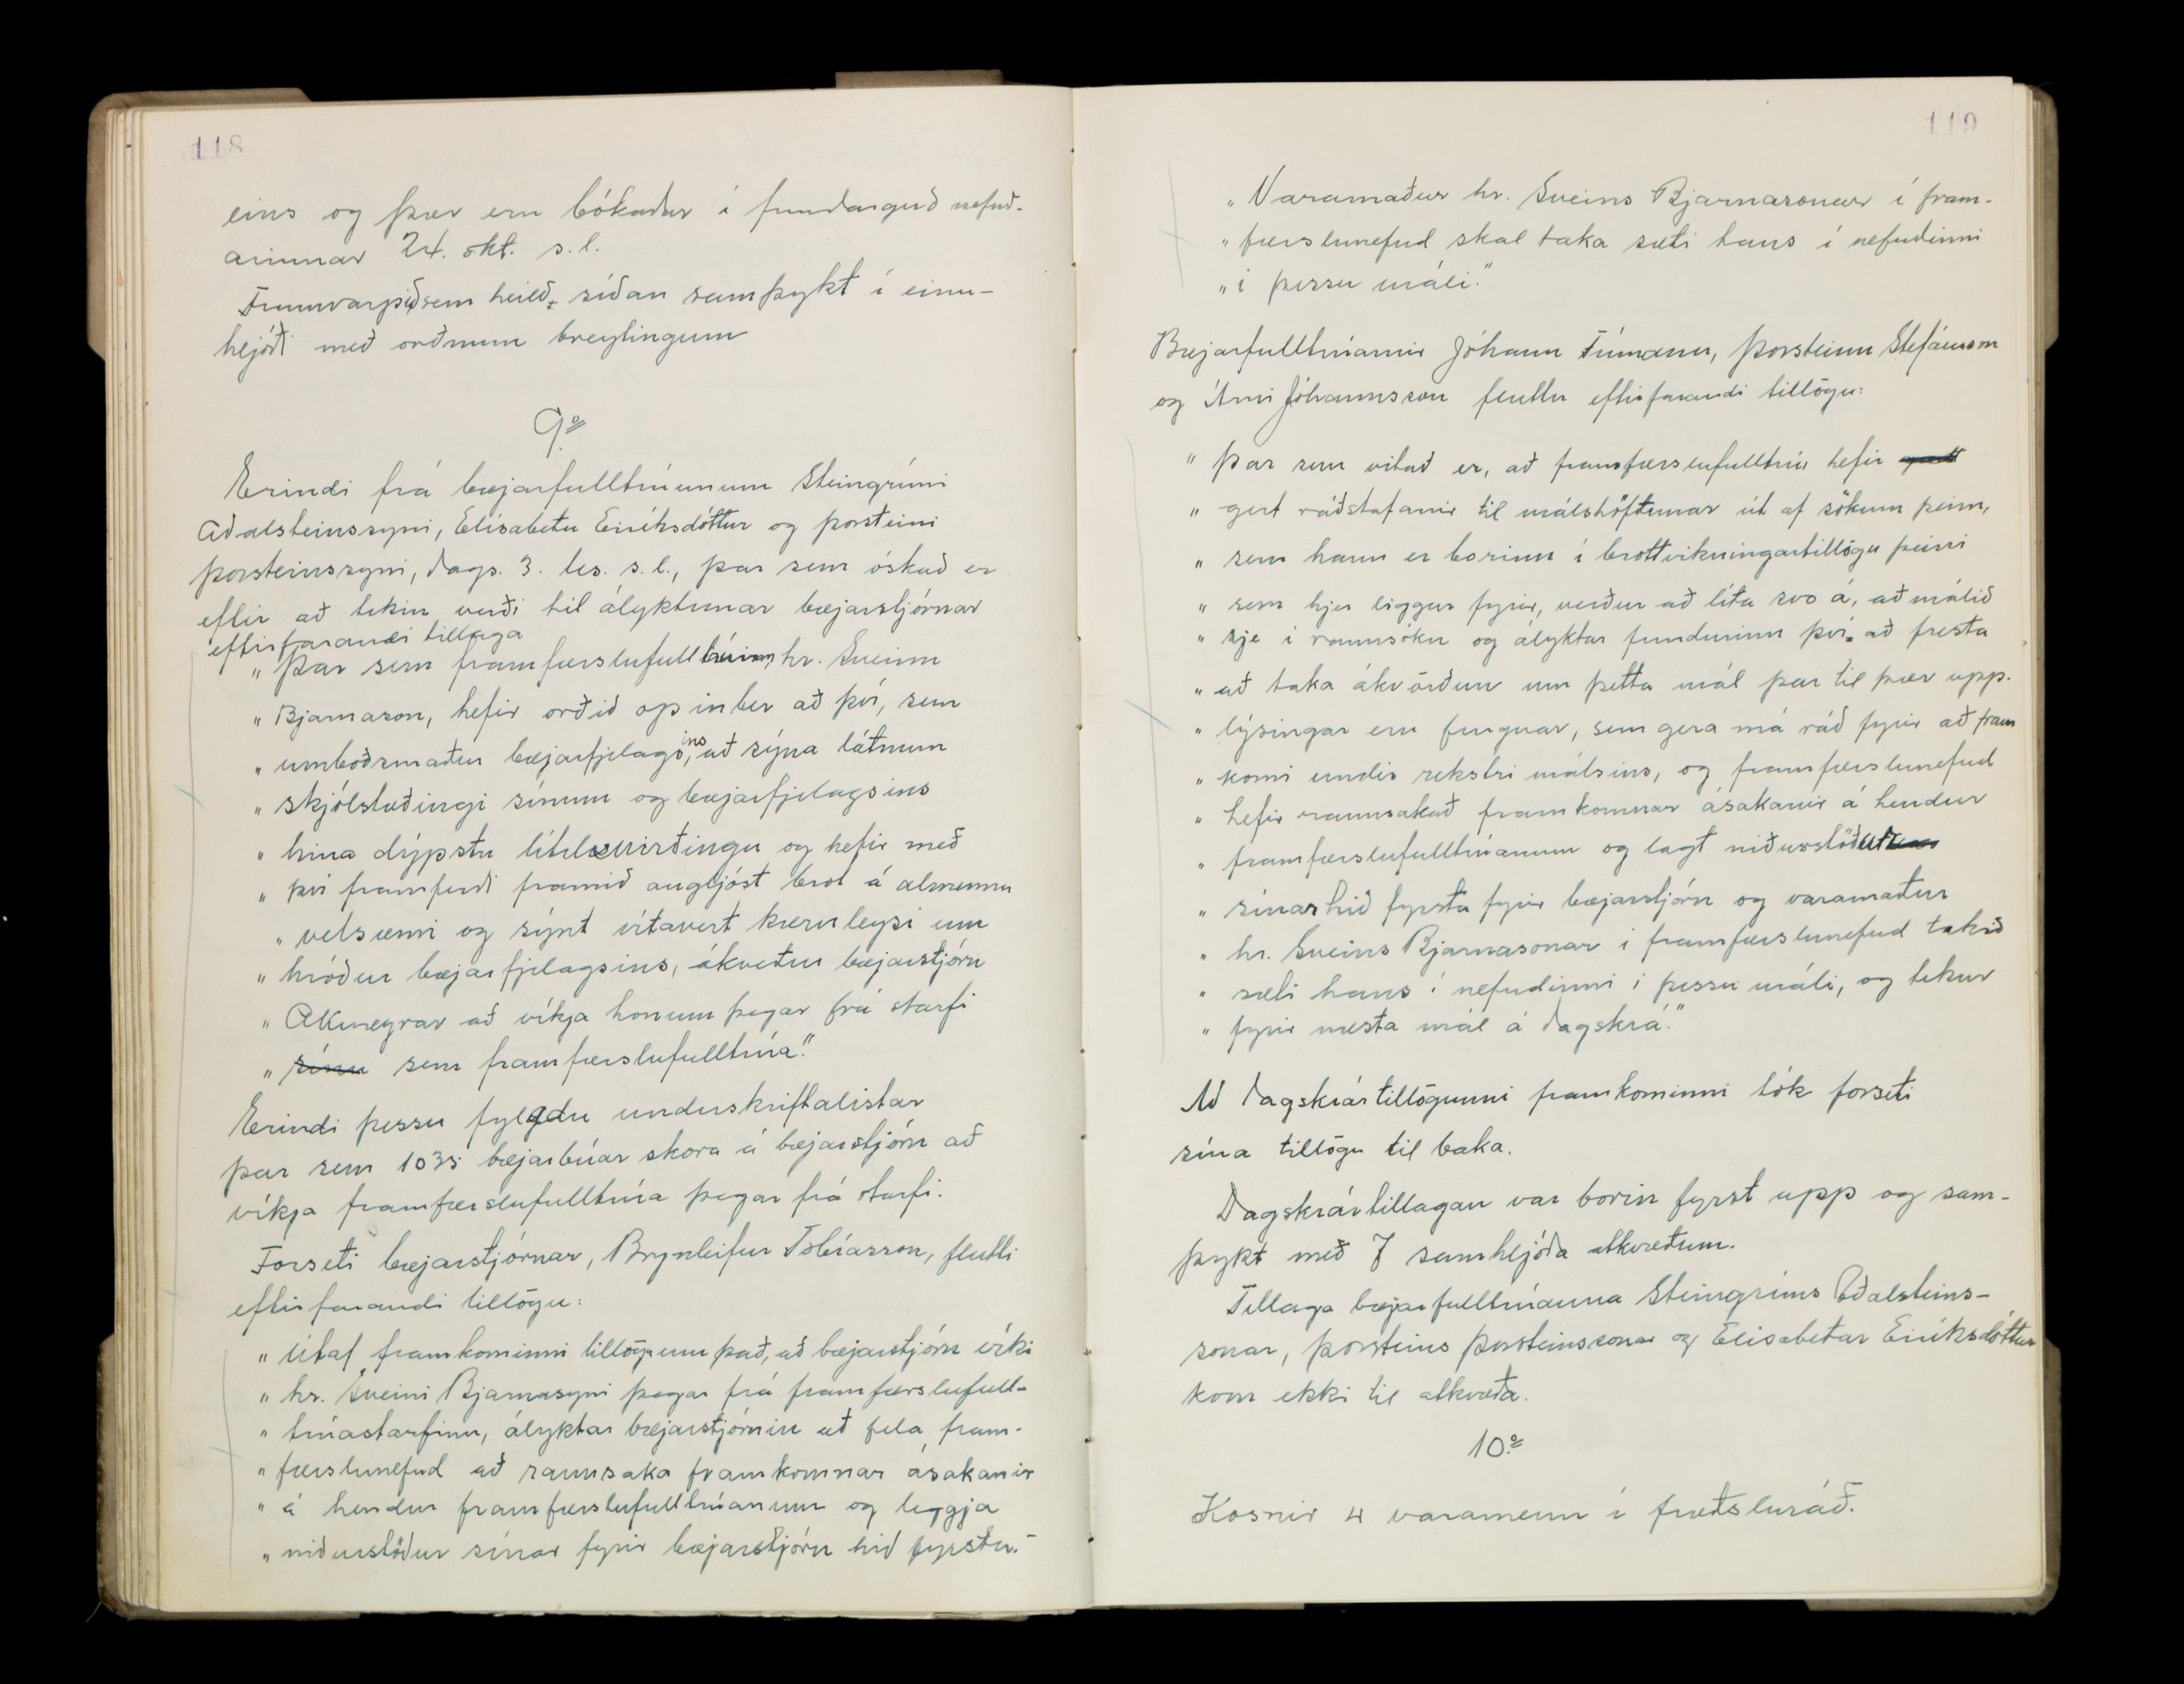 118
eins og þær eru bókaðar í fundargerð nefnd-
arinnar 24. okt. s.l.
Frumvarpið sem heild síðan samþykt í einu-
hljóði með orðnum breytingum
9.
Erindi frá bæjarfulltrúunum Steingrími
Aðalsteinssyni, Elísabetu Eiríksdóttur og Þorsteini
Þorsteinssyni, dags. 3. des. s.l., þar sem óskað er
eftir að tekin verði til ályktunar bæjarstjórnar
eftirfarandi tillaga
„Þar sem framfærslufulltrúinn, hr. Sveinn
„Bjarnason, hefir orðið opinber að því, sem
„umboðsmaður bæjarfjelagsins, að sýna látnum
„skjólstæðingi sínum og bæjarfjelagsins
„hina dýpstu lítilsvirðingu og hefir með
„því framferði framið augljóst brot á almennu
„velsæmi og sýnt vítavert kæruleysi um
„hróður bæjarfjelagsins, ákveður bæjarstjórn
„Akureyrar að víkja honum þegar frá starfi
„sínu sem framfærslufulltrúa."
Erindi þessu fylgdu undirskriftalistar
þar sem 1035 bæjarbúar skora á bæjarstjórn að
víkja framfærslufulltrúa þegar frá starfi.
Forseti bæjarstjórnar, Brynleifur Tobíasson, flutti
eftirfarandi tillögu:
„Útaf framkominni tillögu um það, að bæjarstjórn víki
„hr. Sveini Bjarnasyni þegar frá framfærslufull-
„trúastarfinu, ályktar bæjarstjórnin að fela fram-
„færslunefnd að rannsaka framkomnar ásakanir
„á hendur framfærslufulltrúanum og leggja
„niðurstöður sínar fyrir bæjarstjórn hið fyrsta."
119
„Varamaður hr. Sveins Bjarnasonar í fram-
„færslunefnd skal taka sæti hans í nefndinni
„í þessu máli."
Bæjarfulltrúarnir Jóhann Frímann, Þorsteinn Stefánsson
og Árni Jóhannsson fluttu eftirfarandi tillögu:
„Þar sem vitað er, að framfærslufulltrúi hefir
„gert ráðstafanir til málshöfðunar út af sökum þeim,
„sem hann er borinn í brottvikningartillögu þeirri
„sem hjer liggur fyrir, verður að líta svo á, að málið
„sje í rannsókn og ályktar fundurinn því að fresta
„að taka ákvörðun um þetta mál þar til þær upp-
„lýsingar eru fengnar, sem gera má ráð fyrir að fram
„komi undir rekstri málsins, og framfærslunefnd
„hefir rannsakað framkomnar ásakanir á hendur
„framfærslufulltrúanum og lagt niðurstöður
„sínar hið fyrsta fyrir bæjarstjórn og varamaður
„hr. Sveins Bjarnasonar í framfærslunefnd takið
„sæti hans í nefndinni í þessu máli, og tekur
„fyrir næsta mál á dagskrá."
Að dagskrártillögunni framkominni tók forseti
sína tillögu til baka.
Dagskrártillagan var borin fyrst upp og sam-
þykt með 7 samhljóða atkvæðum.
Tillaga bæjarfulltrúanna Steingríms Aðalsteins-
sonar, Þorsteins Þorsteinssonar og Elisabetar Eiríksdóttur
kom ekki til atkvæða.
10.
Kosnir 4 varamenn í fræðsluráð.